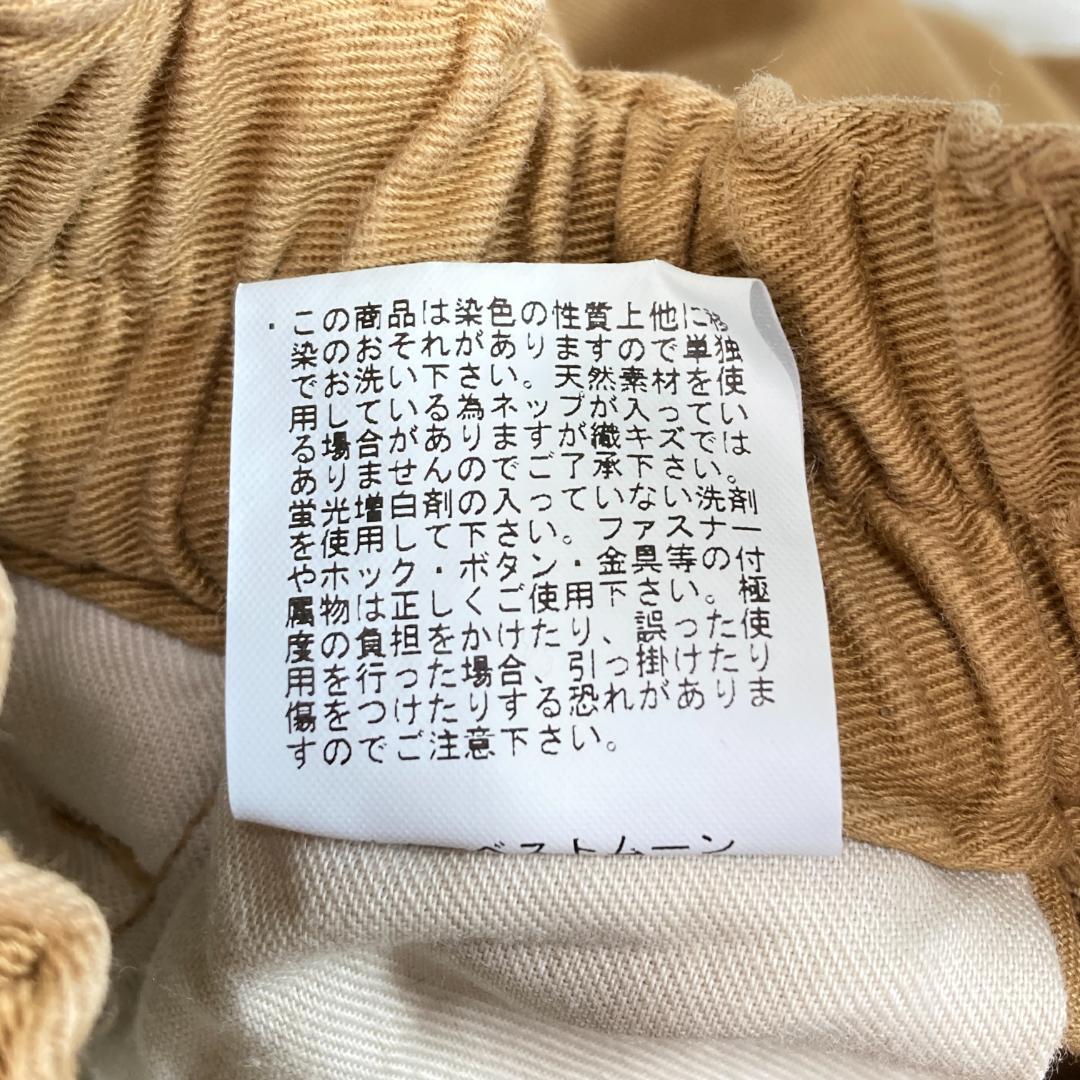 ・この商品は染色の性質上他に移
染のおそれがありますので単独
でお洗い下さい。天然素材を使
用している為ネップが入ってい
る場合がありますが織キズでは
ありませんのでご了承下さい。
蛍光増白剤の入っていない洗剤
を使用して下さい。ファスナー
やホック・ボタン・金具等の付
属物は正しくご使用下さい。極
度の負担をかけたり、誤った使
用を行った場合、引っ掛けたり
傷をつけたりする恐れがありま
すのでご注意下さい。
ベストムーン